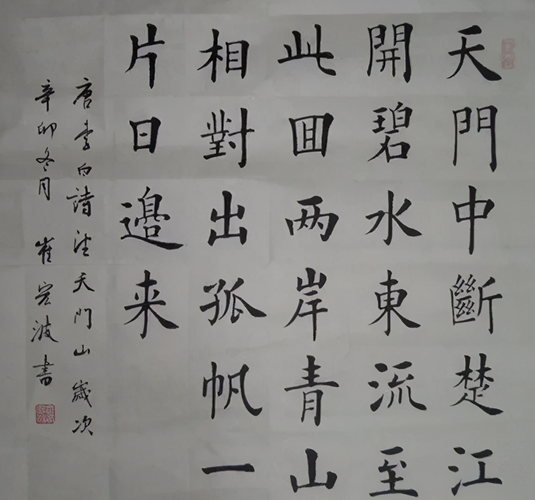 天門中斷楚江
開碧水東流至
此囬两岸青山
相對出孤帆一
片日邊来
唐李白詩望天門山歲次
辛卯冬月崔波書